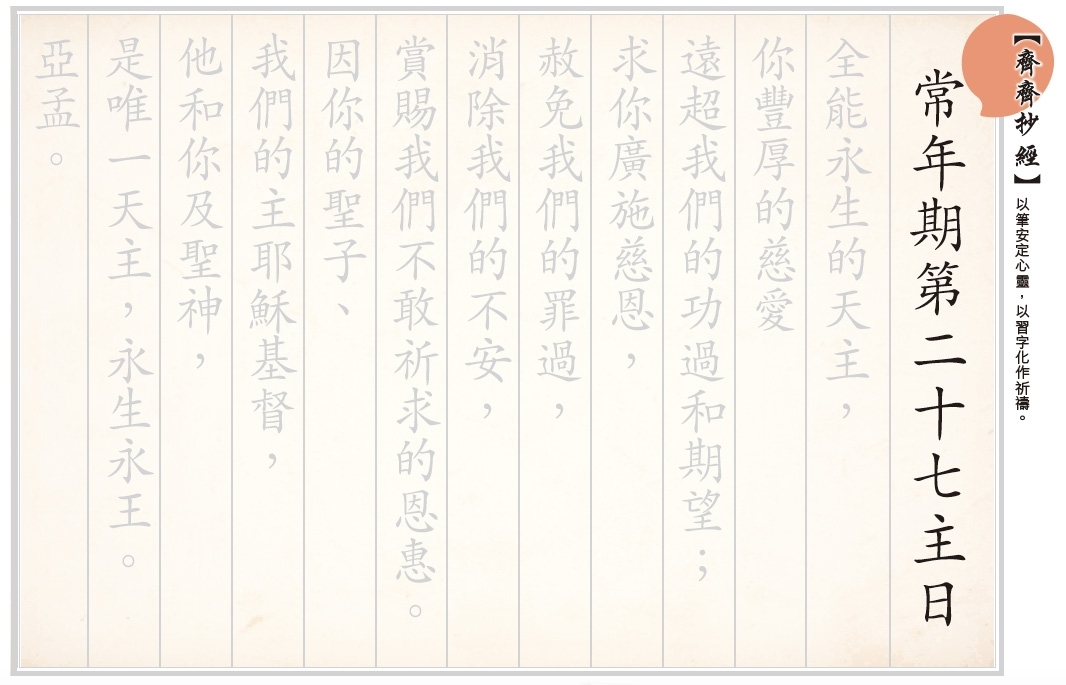 【齊齊抄經】 以筆安定心靈，以習字化作祈禱。
常年期第二十七主日
全能永生的天主，
你豐厚的慈愛
遠超我們的功過和期望；
求你廣施慈恩，
赦免我們的罪過，
消除我們的不安，
賞賜我們不敢祈求的恩惠。
因你的聖子、
我們的主耶穌基督，
他和你及聖神，
是唯一天主，永生永王。
亞孟。